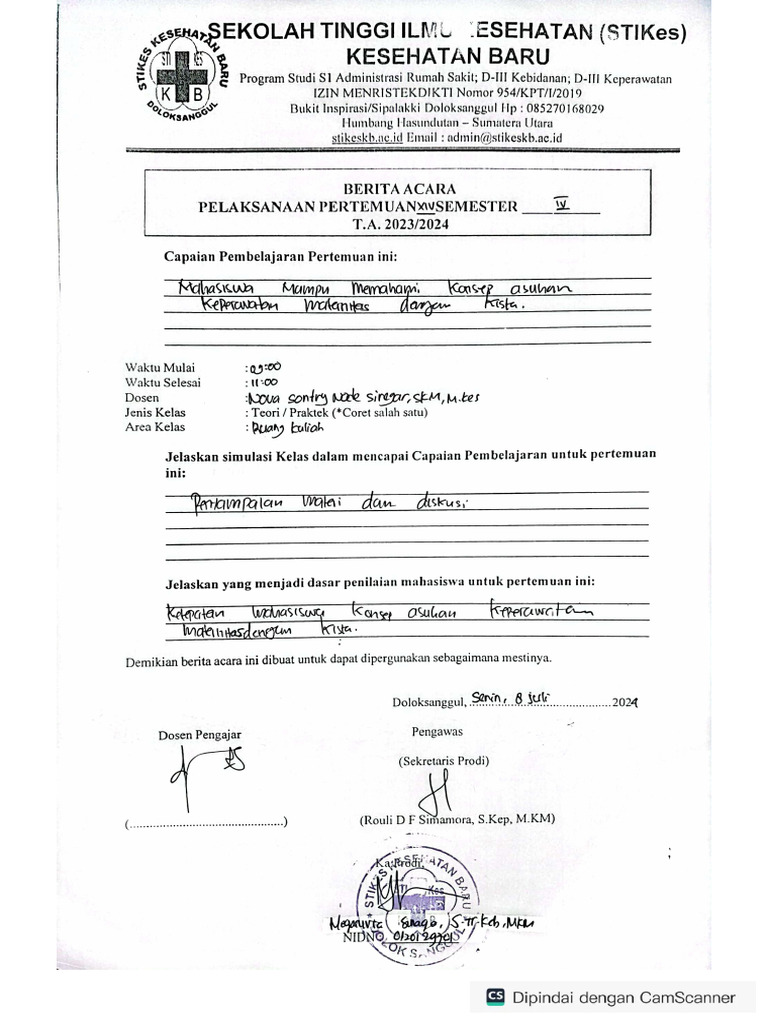 SEKOLAH TINGGI ILMU KESEHATAN (STIKes)
KESEHATAN BARU
STIKES KESEHATAN BARU
STI Kes
K B
DOLOKSANGGUL
Program Studi S1 Administrasi Rumah Sakit; D-III Kebidanan; D-III Keperawatan
IZIN MENRISTEKDIKTI Nomor 954/KPT/I/2019
Bukit Inspirasi/Sipalakki Doloksanggul Hp : 085270168029
Humbang Hasundutan – Sumatera Utara
stikeskb.ac.id Email : admin@stikeskb.ac.id
BERITA ACARA
PELAKSANAAN PERTEMUAN XIV SEMESTER IV
T.A. 2023/2024
Capaian Pembelajaran Pertemuan ini:
Mahasiswa Mampu Memahami Konsep asuhan
Keperawatan Maternitas dengan Kista.
Waktu Mulai : 09:00
Waktu Selesai : 11:00
Dosen : Nova Sontry Node Siregar, SKM, M.kes
Jenis Kelas : Teori / Praktek (*Coret salah satu)
Area Kelas : Ruang kuliah
Jelaskan simulasi Kelas dalam mencapai Capaian Pembelajaran untuk pertemuan
ini:
materi dan diskusi
Jelaskan yang menjadi dasar penilaian mahasiswa untuk pertemuan ini:
Ketepatan Mahasiswa Konsep asuhan Keperawatan
Maternitas dengan Kista.
Demikian berita acara ini dibuat untuk dapat dipergunakan sebagaimana mestinya.
Doloksanggul, Senin, 8 Juli 2024
Dosen Pengajar
Pengawas
(Sekretaris Prodi)
(............................................)
(Rouli D F Simamora, S.Kep, M.KM)
Ka.Prodi,
STIKES KESEHATAN BARU
DOLOK SANGGUL
S.Tr.Keb, MKM
NIDN
CS Dipindai dengan CamScanner